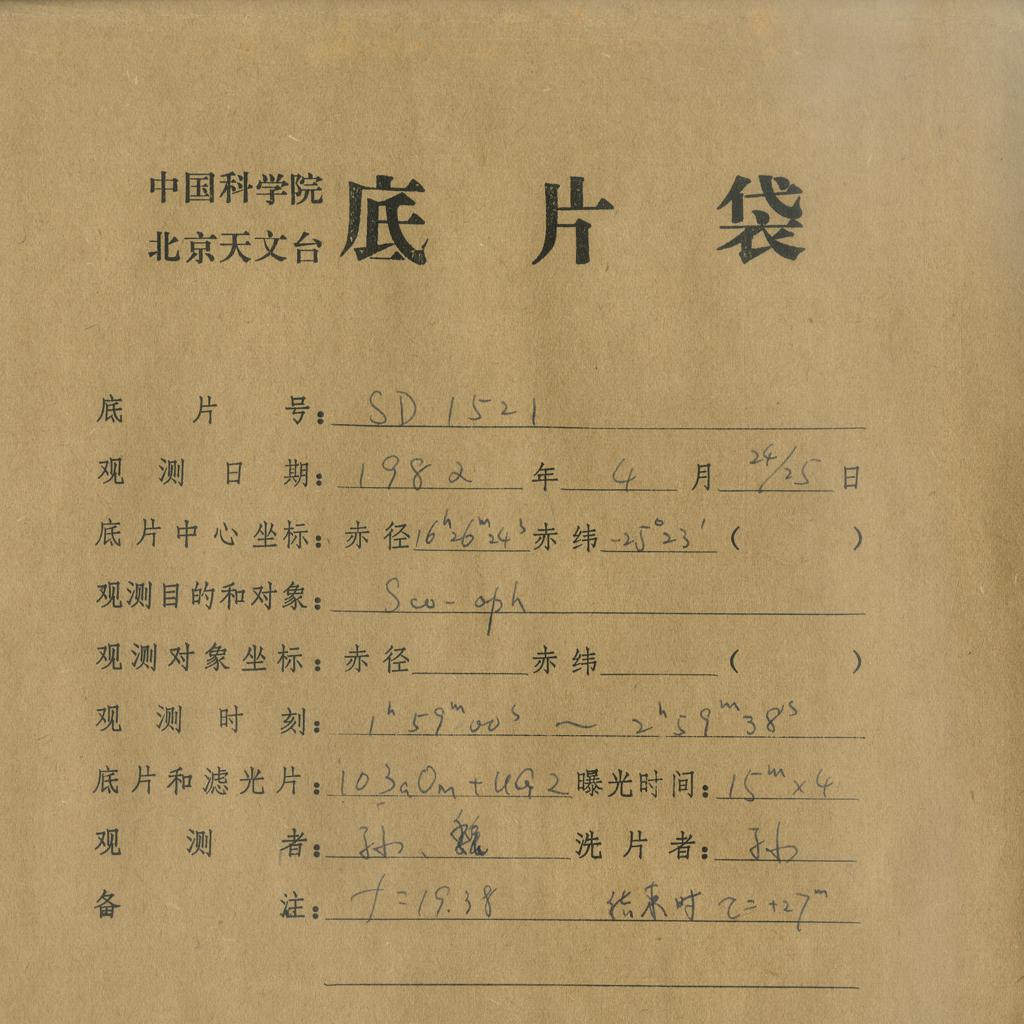 中国科学院
北京天文台
底片袋
底片号: SD 1521
观测日期: 1982 年 4 月 24/25 日
底片中心坐标: 赤径 16h26m24s 赤纬 -25°23′ ( )
观测目的和对象: Sco-oph
观测对象坐标: 赤径 赤纬 ( )
观测时刻: 1h59m00s ~ 2h59m38s
底片和滤光片: 103aOm+UG2 曝光时间: 15m×4
观测者: 孙、魏 洗片者: 孙
备注: f=19.38 结束时 τ=+27m